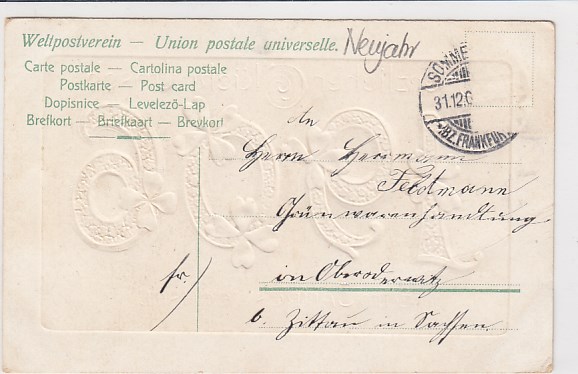 Weltpostverein — Union postale universelle.
Neujahr
Carte postale — Cartolina postale
Postkarte — Post card
Dopisnice — Levelező-Lap
Brefkort — Briefkaart — Brevkort
SOMME
31.12.0
*(BZ. FRANKFUR
An
Herrn Herrmann
Feldmann
Grünwarenhandlung
in Oberoderwitz
fr.
b. Zittau in Sachsen.